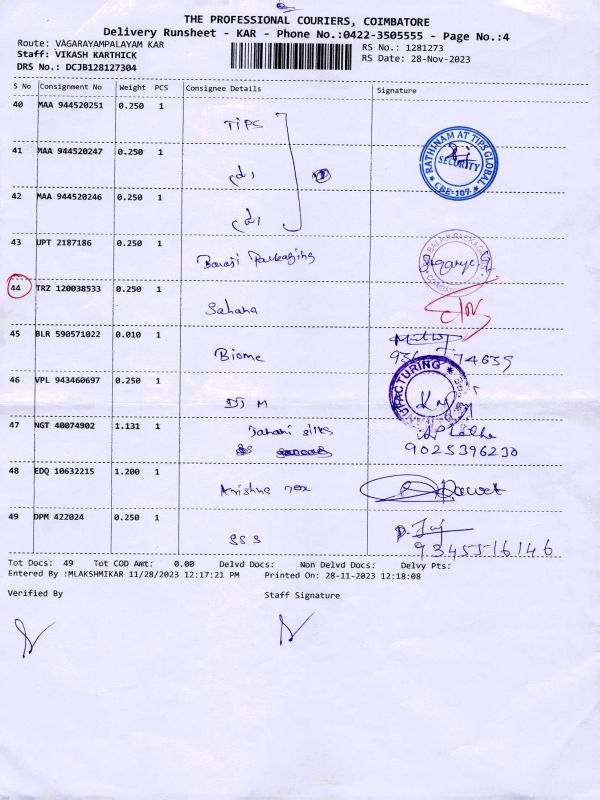 THE PROFESSIONAL COURIERS, COIMBATORE
Delivery Runsheet - KAR - Phone No.:0422-3505555 - Page No.:4
Route: VAGARAYAMPALAYAM KAR
RS No.: 1281273
Staff: VIKASH KARTHICK
RS Date: 28-Nov-2023
DRS No.: DCJB128127304
S No Consignment No Weight PCS Consignee Details Signature
40 MAA 944520251 0.250 1
TIPS
41 MAA 944520247 0.250 1
RATHINAM AT TIPS GLOBAL
SECURITY
CBE-107
42 MAA 944520246 0.250 1
43 UPT 2187186 0.250 1
Balaji Packaging
BALAJI PACKAGINGS
COIMBATORE
44 TRZ 120038533 0.250 1
Sahana
45 BLR 590571022 0.010 1
Biome
46 VPL 943460697 0.250 1
DJ M
MANUFACTURING
47 NGT 40074902 1.131 1
silks
9025396230
48 EDQ 10632215 1.200 1
Krishna
49 DPM 422024 0.250 1
SSS
9345516146
Tot Docs: 49 Tot COD Amt: 0.00 Delvd Docs: Non Delvd Docs: Delvy Pts:
Entered By :MLAKSHMIKAR 11/28/2023 12:17:21 PM Printed On: 28-11-2023 12:18:08
Verified By Staff Signature